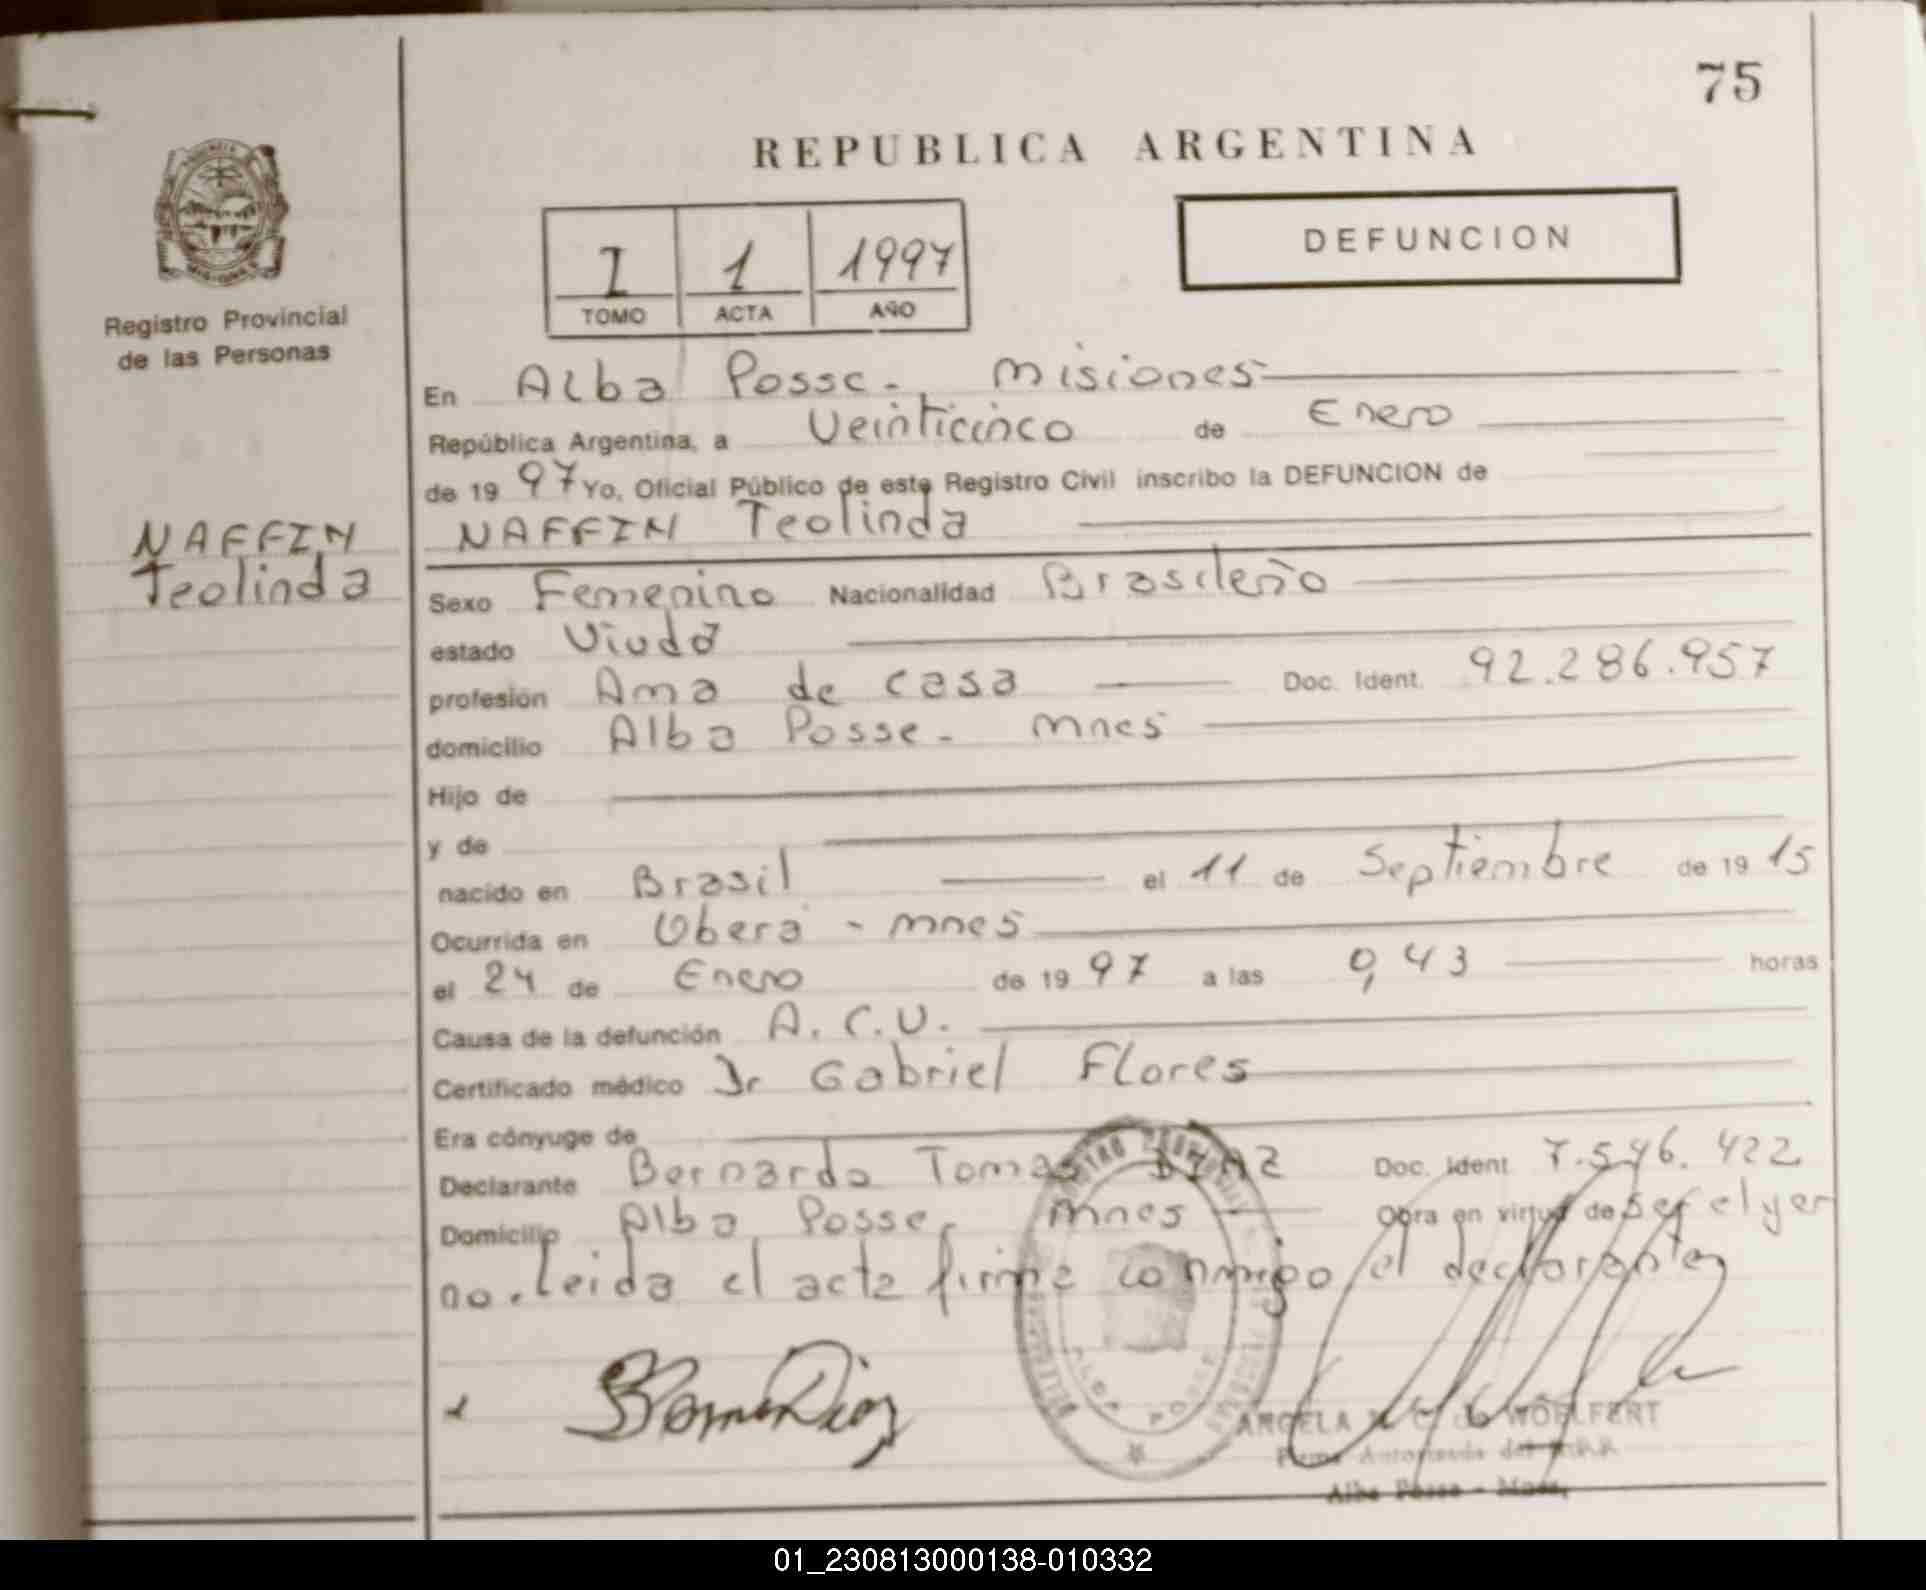 75
REPUBLICA ARGENTINA
DEFUNCION
I 1 1997
TOMO ACTA AÑO
Registro Provincial
de las Personas
En Alba Posse - Misiones
República Argentina, a Veinticinco de Enero
de 1997 Yo, Oficial Público de este Registro Civil inscribo la DEFUNCION de
NAFFIN Teolinda
NAFFIN
Teolinda
Sexo Femenino Nacionalidad Brasileño
estado Viuda
profesión Ama de casa Doc. Ident. 92.286.957
domicilio Alba Posse - Mnes
Hijo de
y de
nacido en Brasil el 11 de Septiembre de 1915
Ocurrida en Oberá - Mnes
el 24 de Enero de 1997 a las 0,43 horas
Causa de la defunción A.C.V.
Certificado médico Dr Gabriel Flores
Era cónyuge de
Declarante Bernardo Tomas DIAZ Doc. Ident 7.546.422
Domicilio Alba Posse, Mnes Obra en virtud de ser el yer
no. Leida el acta firma conmigo el declarante
ANGELA de WOELFERT
Firma Autorizada del
Alba Posse - Mnes.
ALBA POSSE
01_230813000138-010332